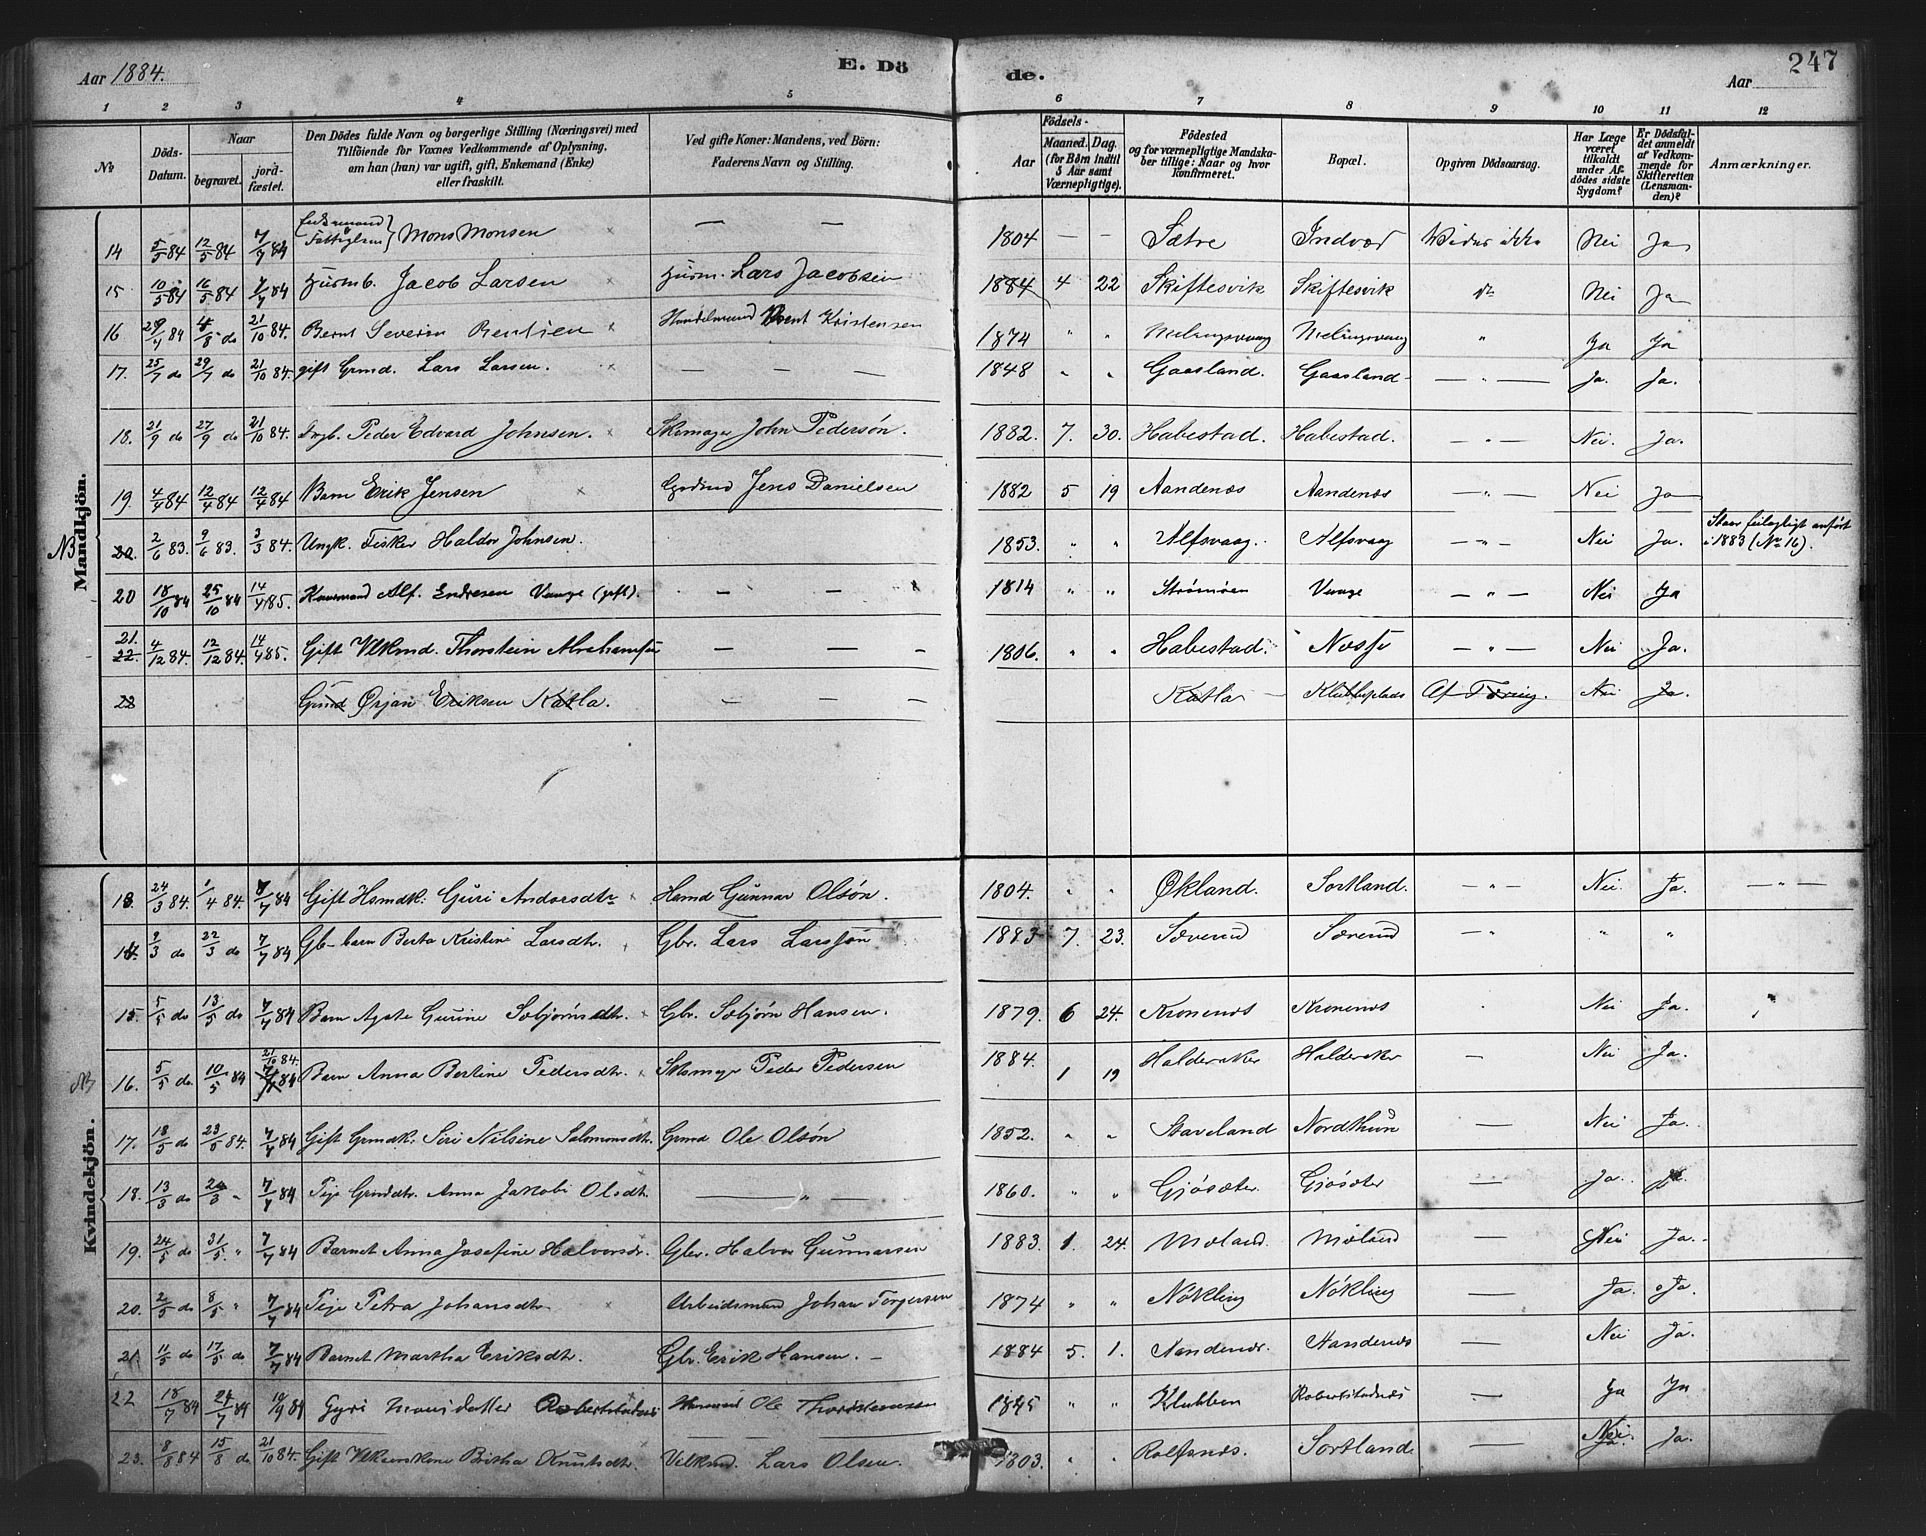 Aar 1884. E. Dö de. Aar 247
1 2 3 4 5 6 7 8 9 10 11 12
No Döds-Datum. Naar begravet. jord-fæstet. Den Dödes fulde Navn og borgerlige Stilling (Næringsvei) med Tilföiende for Voxnes Vedkommende af Oplysning, om han (hun) var ugift, gift, Enkemand (Enke) eller fraskilt. Ved gifte Koner: Mandens, ved Börn: Faderens Navn og Stilling. Födsels- Aar Maaned. Dag. (for Börn indtil 5 Aar samt Værnepligtige). Födested og for værnepligtige Mandskaber tillige: Naar og hvor konfirmeret. Bopæl. Opgiven Dödsaarsag. Har Læge været tilkaldt under Afdödes sidste Sygdom? Er Dödsfaldet anmeldt af Vedkommende for Skifteretten (Lensmanden)? Anmærkninger.
Mandkjön.
14 5/5 84 12/5 84 7/7 84 Mons Monsen — — 1804 — — Sætre Indvær Vides ikke Nei Ja
15 10/5 84 16/5 84 7/7 84 Husmb. Jacob Larsen Husm. Lars Jacobsen 1884 4 22 Skiftesvik Skiftesvik do Nei Ja
16 84 do 21/10 84. Bernt Severin Bentsen Handelsmand Kristensen 1874 " " Mælingsvaag Mælingsvaag " Ja Ja
17. 25/7 do 29/7 do 21/10 84. gift Grmd. Lars Larsen. — — — 1848 " " Gaasland. Gaasland — " — Ja. Ja.
18. 21/9 do 27/9 do 21/10 84. Peder Edvard Johnsen. Skomager John Pedersøn. 1882. 7. 30. Habestad. Habestad. — " — Nei. Ja.
19 4/4 84 12/4 84 12/4 84 Barn Erik Jensen Jens Danielsen 1882 5 19 Aandenæs Aandenæs — " — Nei Ja
NB 20. 2/6 83. 9/6 83. 3/3 84. Ungk. Fisker Haldor Johnsen. 1853. " " Alfsvaag. Alfsvaag — " — Nei Ja. Staar feilagtigt anført i 1883 (No 16).
20 18/10 84 25/10 84 14/4 85. Alf. Endresen Vaage (gift). — — 1814 " " Strømøen Vaage — " — Nei Ja
21. 22. 4/12 84. 12/12 84. 14/4 85. Gift Thorstein Abrahamsen — — — 1806. " " Habestad. Nosse — " — Nei Ja.
22 Grmd Ørjan Eriksen Katla. — — — Katla Klubbeplads Af Tæring. Nei Ja.
Kvindekjön.
13. 24/3 84. 1/4 84. 7/7 84 Gift Hsmdk. Guri Andersdtr Hsmd Gunnar Olsøn. 1804. " " Økland. Sortland. — " — Nei. Ja. — " —
14. 9/3 do 22/3 do 7/7 84 Gb- barn Berta Kristine Larsdtr. Gbr. Lars Larssøn 1883 7. 23. Sæverud Særerud — " " "
15. 5/5 do 13/5 do 7/7 84 Barn Agate Gurine Sæbjørnsdtr. Gbr. Sæbjørn Hansen. 1879. 6 24. Kronenæs Kronenæs Nei Ja. "
NB 16. 5/5 do. 10/5 84 21/10 84. 84 Barn Anna Bertine Pedersdtr. Skomager Peder Pedersen 1884. 1 19 Halderaker Halderaker — Nei Ja.
17. 18/5 do 23/5 84. 7/7 84 Gift Grmdk. Siri Nilsine Salmonsdtr. Grmd Ole Olsøn 1852. " " Staveland Nordthun — Nei Ja.
18. 13/3 do 7/7 84 Pige Grmdtr. Anna Jakobe Olsdtr. — " — 1860. " " Gjøsæter. Gjøsæter — Ja. Ja.
19. 24/5 do 31/5 " 7/7 84 Barnet Anna Josefine Halvorsdr. Gbr. Halvor Gunnarsen 1883. 1. 24. Mæland. Mæland — Nei Ja.
20. 2/5 do 8/5 " 7/7 84 Pige Petra Johansdtr Arbeidsmand Johan Torgersen 1874 " " Nøkling Nøkling — Ja. Ja.
21 11/5 do 17/5 do 7/7 84 Barnet Martha Eriksdtr. Gbr. Erik Hansen. — 1884 5. 1. Aandenæs. Aandenæs — Nei Ja.
22 18/7 84 24/7 84 10/9 84 Gyri Monsdatter Ole Thorstensen 1845 " " Klubben Robertstadnæs — Ja Ja
23. 8/8 84 15/8 do 21/10 84. Gift Britha Knutsdtr. Lars Olsen. 1803. " " Rolfsnæs. Sortland — Nei. Ja. Ja.